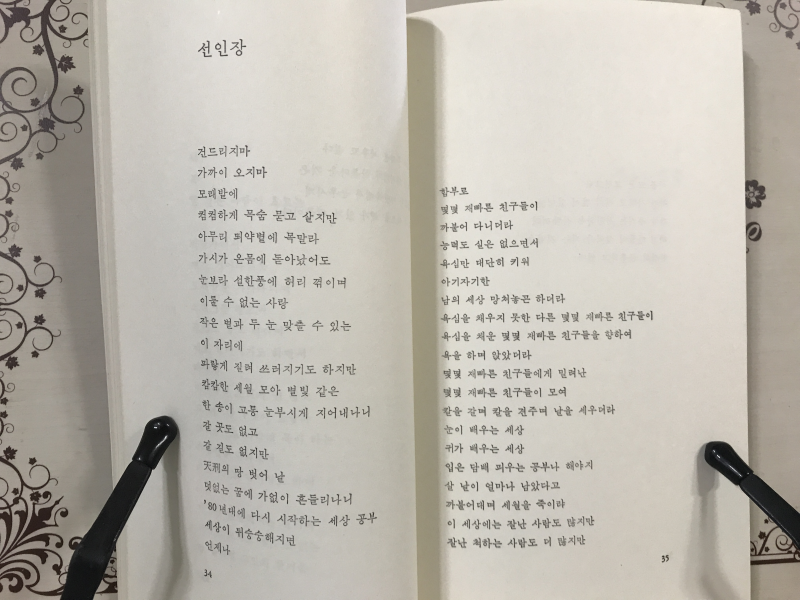 선인장
건드리지마
가까이 오지마
모래밭에
컴컴하게 목숨 묻고 살지만
아무리 뙤약볕에 목말라
가시가 온몸에 돋아났어도
눈보라 설한풍에 허리 꺾이며
이룰 수 없는 사랑
작은 별과 두 눈 맞출 수 있는
이 자리에
파랗게 질려 쓰러지기도 하지만
캄캄한 세월 모아 별빛 같은
한 송이 고통 눈부시게 지어내나니
갈 곳도 없고
갈 길도 없지만
天刑의 땅 벗어 날
덧없는 꿈에 가없이 흔들리나니
'80년대에 다시 시작하는 세상 공부
세상이 뒤숭숭해지면
언제나
34
함부로
몇몇 재빠른 친구들이
까불어 다니더라
능력도 실은 없으면서
욕심만 대단히 키워
아기자기한
남의 세상 망쳐놓곤 하더라
욕심을 채우지 못한 다른 몇몇 재빠른 친구들이
욕심을 채운 몇몇 재빠른 친구들을 향하여
욕을 하며 앉았더라
몇몇 재빠른 친구들에게 밀려난
몇몇 재빠른 친구들이 모여
칼을 갈며 칼을 견주며 날을 세우더라
눈이 배우는 세상
귀가 배우는 세상
입은 담배 피우는 공부나 해야지
살 날이 얼마나 남았다고
까불어대며 세월을 죽이랴
이 세상에는 잘난 사람도 많지만
잘난 척하는 사람도 더 많지만
35